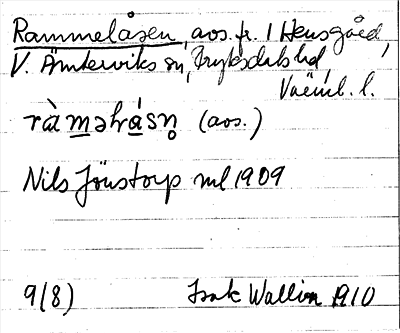 Rammelåsen, avs. fr. 1 Hensgård,
V. Ämterviks sn, Fryksdals hd,
Värml. l.
ràməlråsn̥ (avs.)
Nils Jönstorp ml 1909
9(8) Isak Wallin 1910